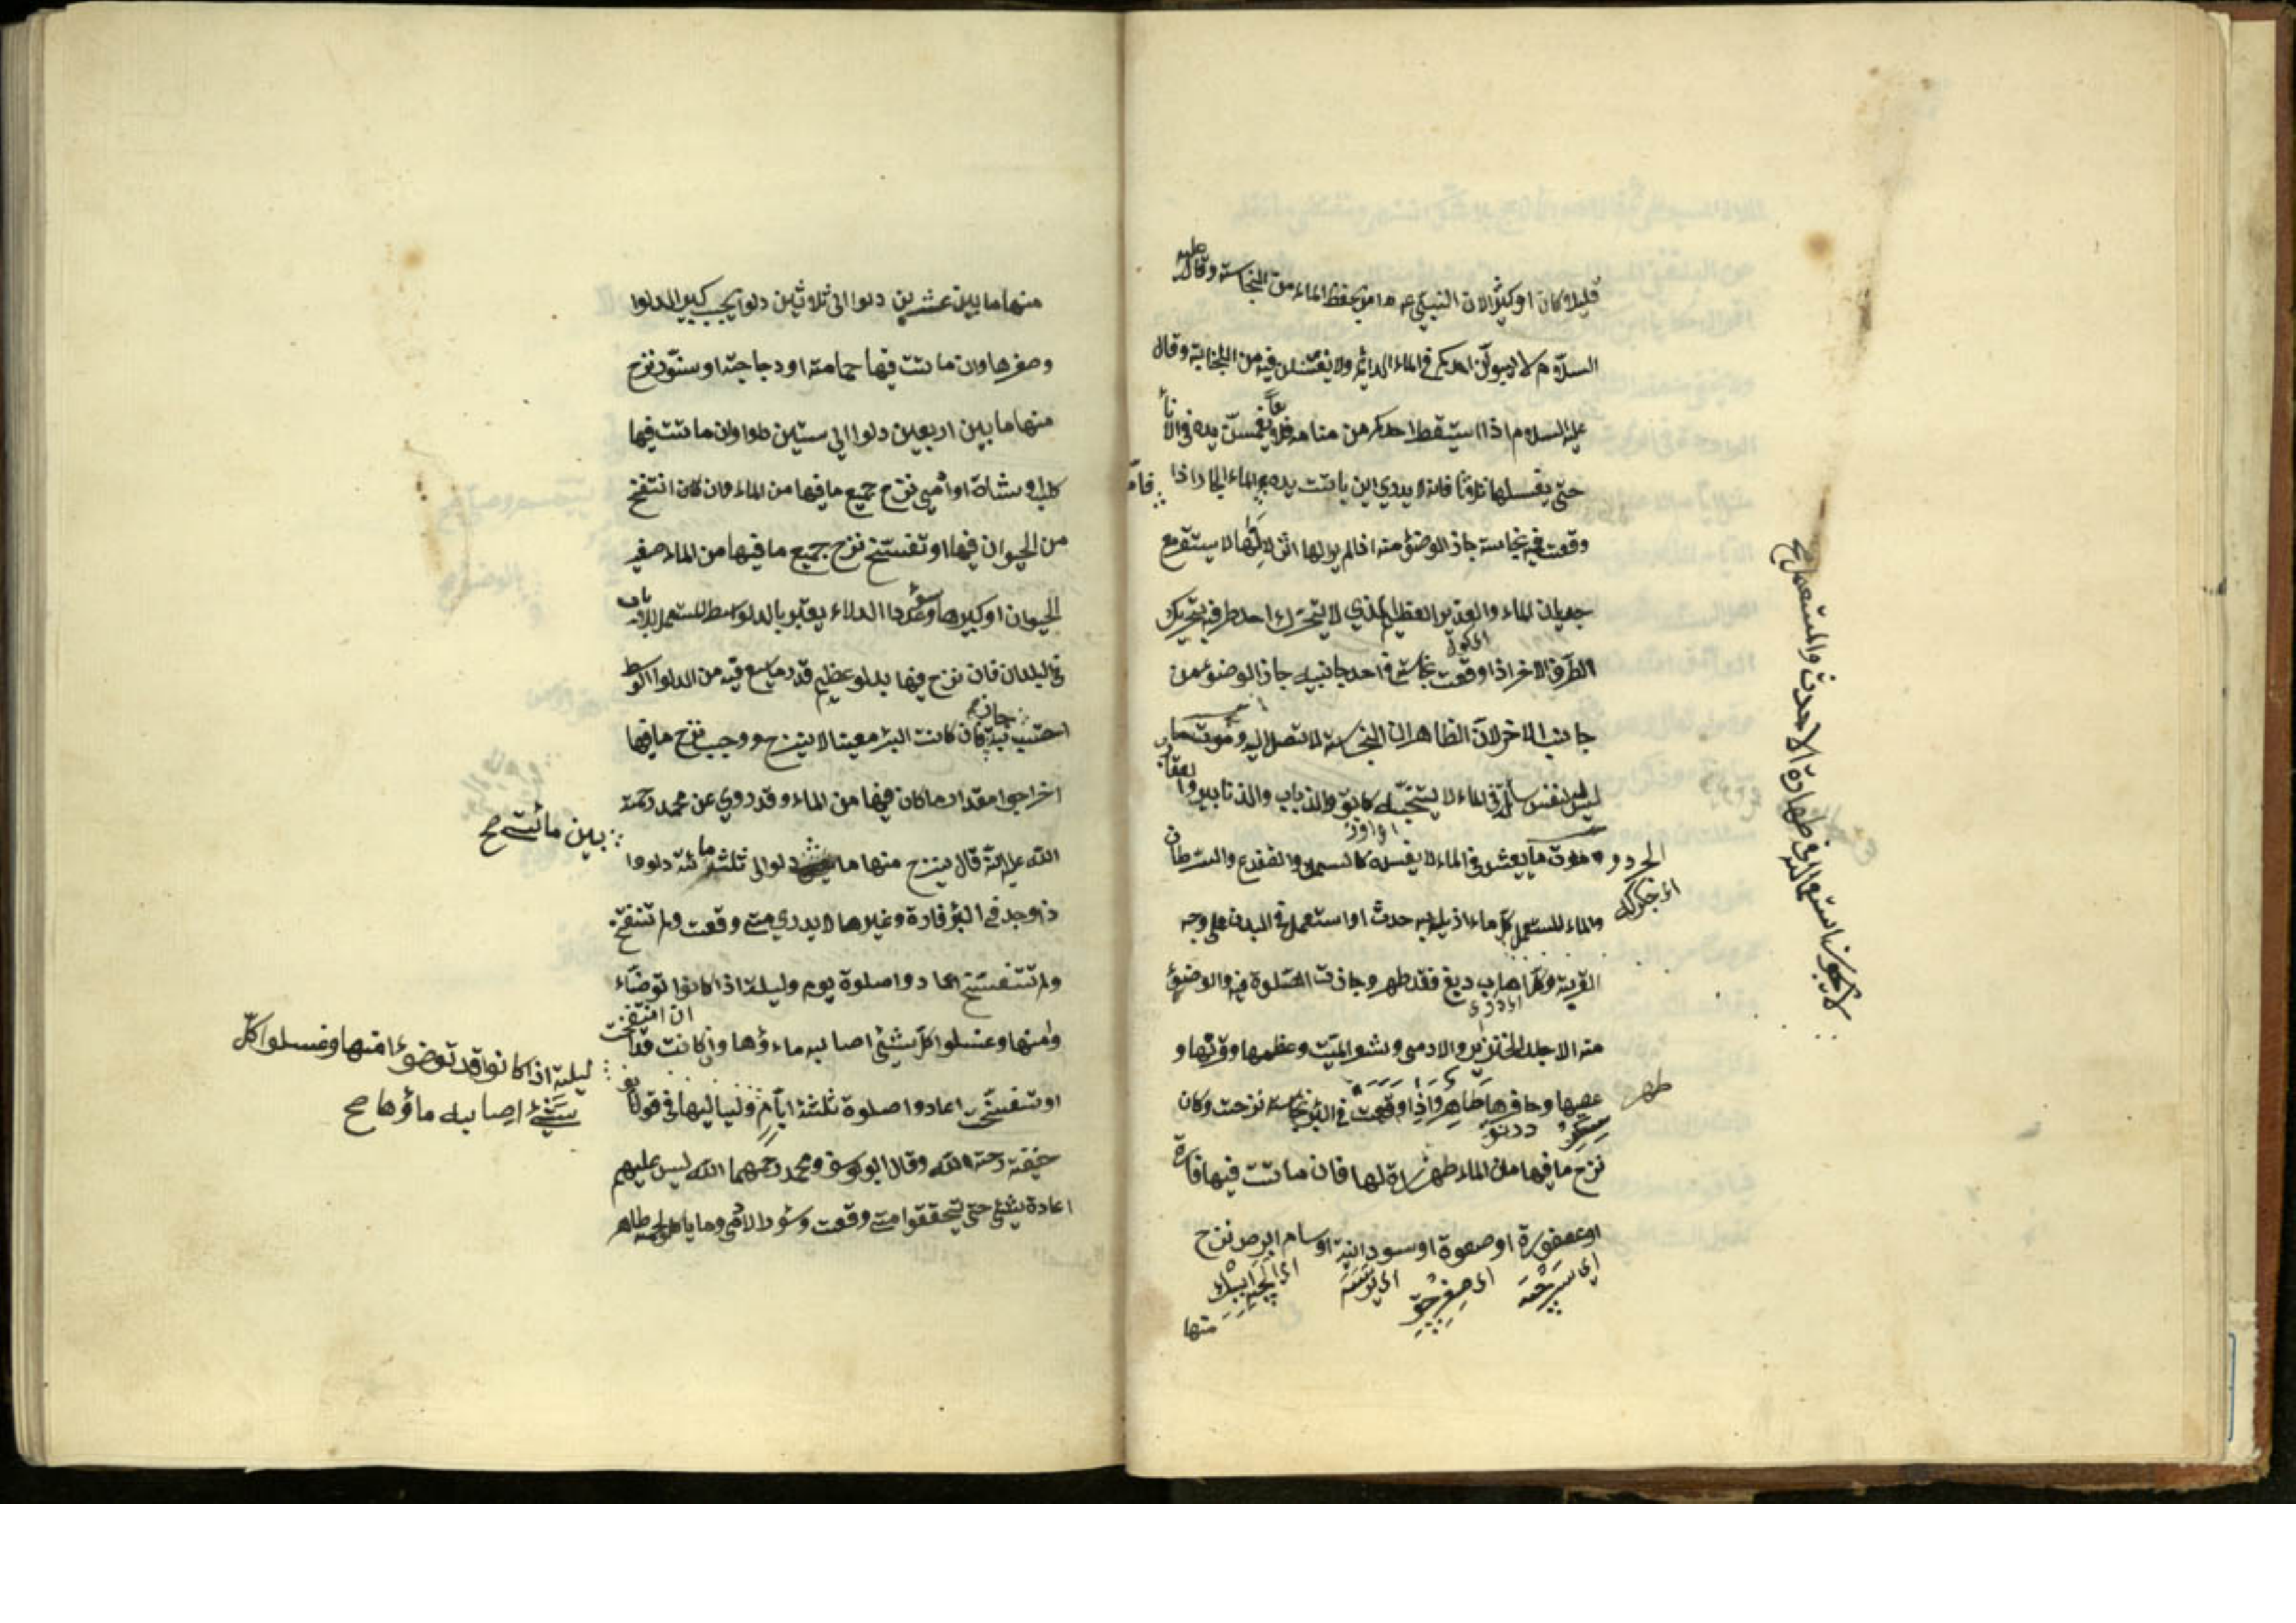 قليلا وكان او كثيرا لان النبيّ عم امر بحفظ الماء من النجاسة وقال عليه
السلام لا يبولنّ احدكم في الماء الدائم ولا يغتسلن فيه من الجنابة وقال
عليه السلام اذا استيقظ احدكم من منامه فلا يغمسنّ يده في الاناء
حتّى يغسلها ثلاثا فانه لا يدري اين باتت يده الماء الجار اذا
فامّا
وقعت فيه نجاسة جاز الوضؤ منه اذا لم يرا لها اثر لانّها لا يستقر مع
جريان الماء والغدير العظيم الذي لا يتحرّك احد طرفيه بتحريك
الطرف الاخر اذا وقعت نجاسة في احد جانبيه جاز الوضوء من
جانب الاخر لانّ الظاهر ان النجاسة لا تصل اليه وموت ما
ليس له نفس سائلة في الماء لا ينجّسه كا لبقّ والذباب والذنابير والعقارب
وموت ما يعيش في الماء لا يفسده كا لسمك والضفدع والسرطان
الجردو
والماء المستعمل كل ماء اذيل به حدث او استعمل في البدن على وجه
القربة وكلّ اهاب دبغ فقد طهر وجازت الصّلوة فيه والوضؤ
منه الا جلد الخنزير والادمى وشعر الميّت وعظمها وقرنها و
عصبها وحافرها طاهر واذا وقعت في البئر نجاسة نزحت وكان
طهر
نزح ما فيها من الماء طهارة لها فان ماتت فيها فارة
او عصفورة او صعوة او سودانية او سام ابرص نزح
منها
لا يجوز استعماله في طهارة الاحدث والمستعمل صح
منها ما بين عشرين دلوا الى ثلاثين دلوا بحسب كبير الدلوا
وصغرها وان ماتت فيها حمامة او دجاجة او سنّور نزح
منها ما بين اربعين دلوا الى ستين دلوا وان ماتت فيها
كلب او شاة او آدمي نزح جميع ما فيها من الماء وان كان انتفخ
من الحيوان فيها او تفسّخ نزح جميع ما فيها من الماء صغير
الحيوان او كبيرها وعدد الدلاء يعتبر بالدلو وسط المستعمل للابار
في البلدان فان نزح فيها بدلو عظيم قدر ما يسع فيه من الدلوا الوسط
احتسب به فان كانت البئر معينا لا ينزح ووجب نزح ما فيها
اخراجوا مقدار ما كان فيها من الماء وقد روي عن محمد رحمة
الله عليه انّه قال ينزح منها ما دلوا الى ثلثمائة دلو وا
بين مأتى صح
ذا وجد في البئر فارة وغيرها لا يدري متى وقعت ولم تنتفخ
ولم تتفسّخ اعادوا صلوة يوم وليلة اذا كانوا توضّاء
وا منها وغسلوا كلّ شئ اصابه ماءؤها وان كانت قد انتفخت
ليلة اذا كانوا قد توضوء ا منها وغسلوا كلّ
شئ اصابه ماؤها صح
او تفسّخت اعادوا صلوة ثلثة ايّام ولياليها في قول ابو
حنيفة رحمة الله وقال ابو يوسف ومحمد رحمهما الله ليس عليهم
اعادة شئ حتّى يتحققوا متى وقعت وسؤر الادمى وما ياكل لحمه طاهر